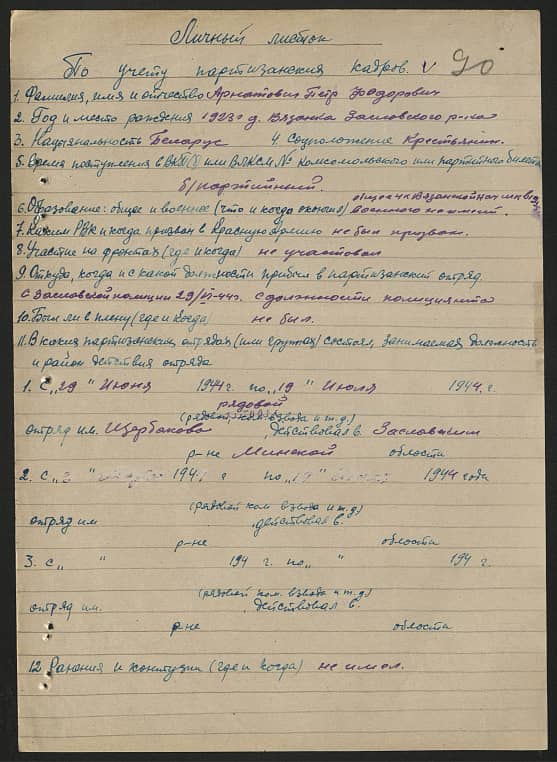 Личный листок
По учету партизанских кадров. V 90
1. Фамилия, имя и отчество Арматович Пётр Фёдорович
2. Год и место рождения 1923 г. д. Вязанка Заславского р-на
3. Национальность Беларус 4. Соцположение Крестьянин.
5. Время поступления в ВКП(б) или ВЛКСМ, № Комсомольского или партийного билета
б/партийный.
6. Образование: общее и военное (что и когда окончил) военного не имеет.
7. Каким РВК и когда призван в Красную Армию не был призван.
8. Участие на фронтах (где и когда) не участвовал
9. Откуда, когда и с какой должности прибыл в партизанский отряд.
с Заславской полиции 29/VI-44г. с должности полицианта
10. Был ли в плену (где и когда) не был.
11. В каких партизанских отрядах (или группах) состоял, занимаемая должность
и район действия отряда
1. С „29 " Июня 1944 г. по „19 " Июля 1944 г.
рядовой
(рядовой, ком. взвода и т.д.)
отряд им. Щербакова действовал в. Заславским
р-не Минской области
2. с „ " 194 г по „19 " 1944 года
(рядовой ком взвода и т.д.)
отряд им действовал в.
р-не области
3. с „ " 194 г. по „ " 194 г.
(рядовой пом. взвода и т.д.)
отряд им. действовал в.
р-не области
12. Ранения и контузии (где и когда) не имел.